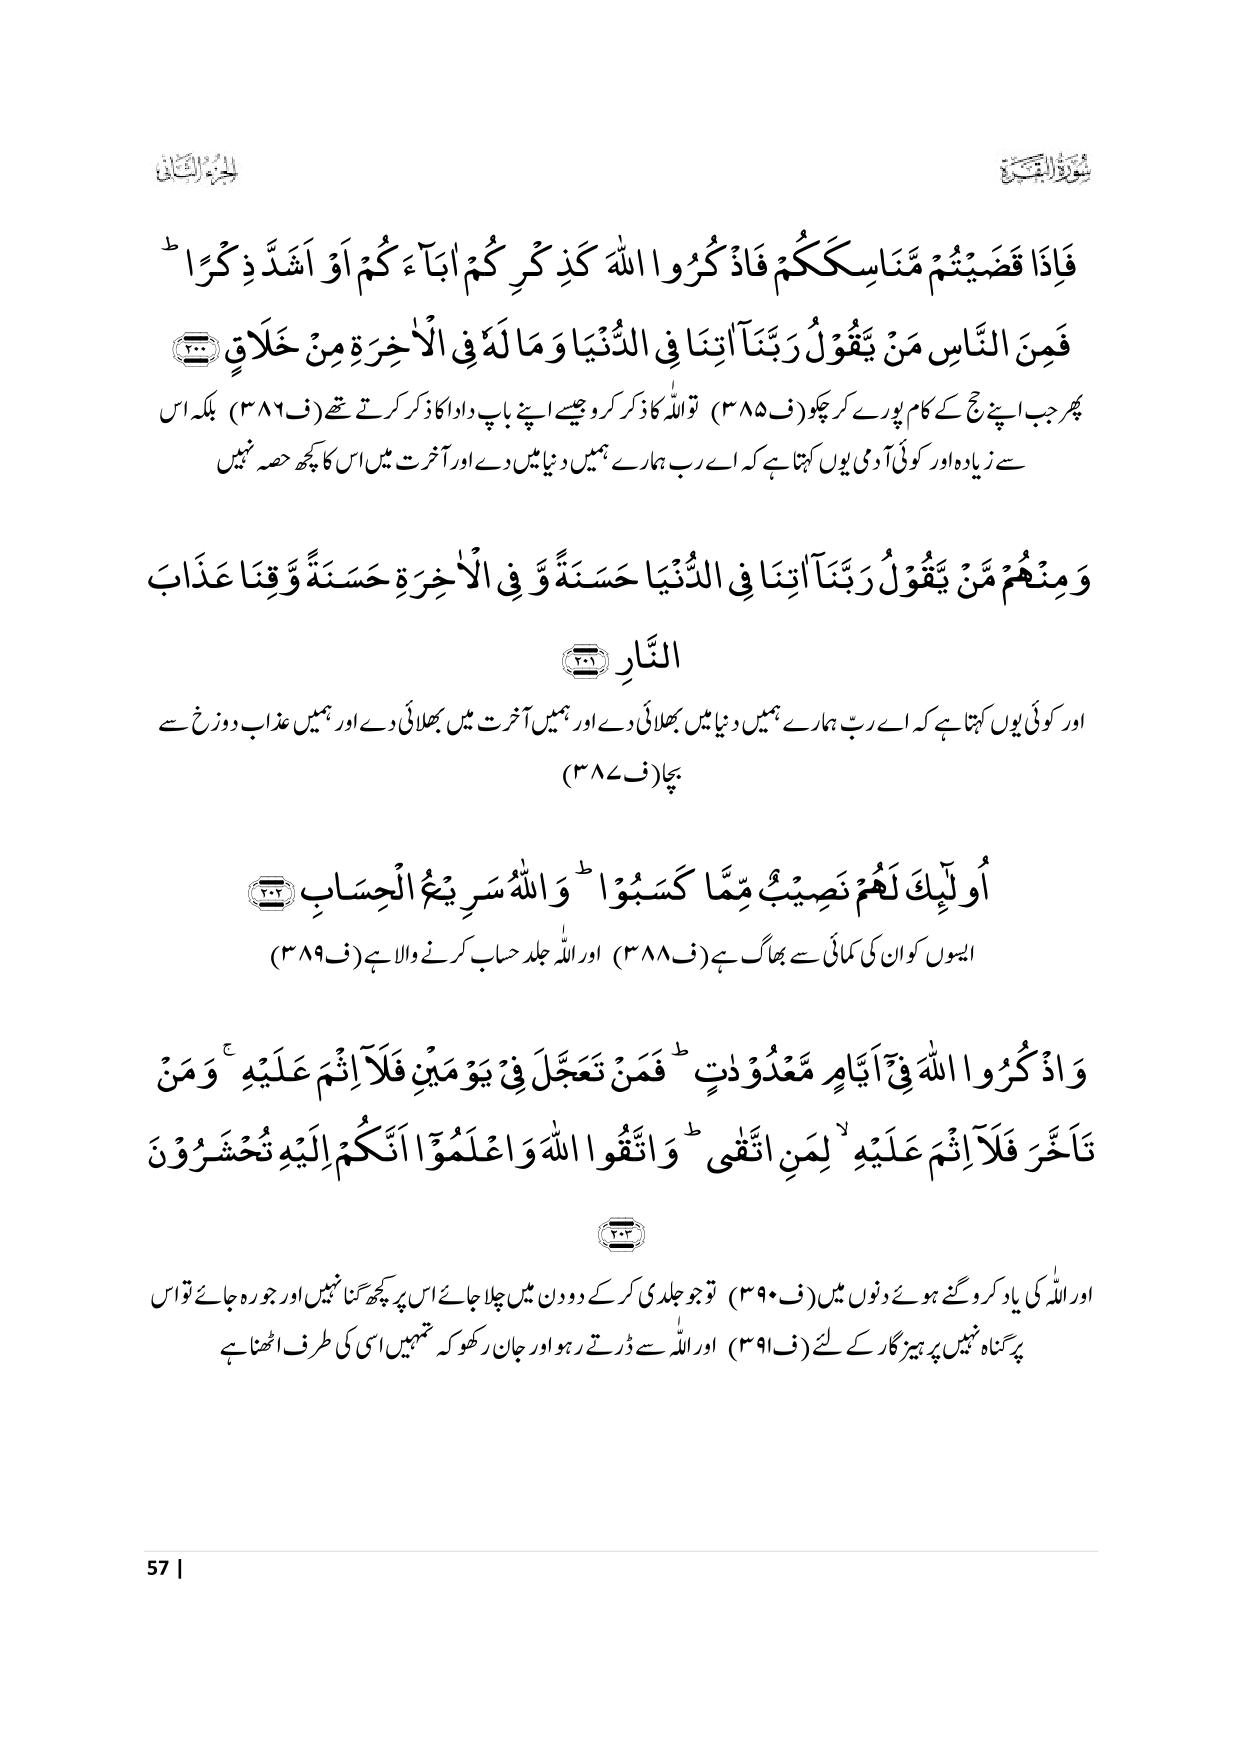 سُوْرَةُ الْبَقَرَة
الجزء الثانی
فَاِذَا قَضَيْتُمْ مَّنَاسِكَكُمْ فَاذْكُرُوا اللّٰهَ كَذِكْرِكُمْ اٰبَآءَكُمْ اَوْ اَشَدَّ ذِكْرًا ؕ
فَمِنَ النَّاسِ مَنْ يَّقُوْلُ رَبَّنَآ اٰتِنَا فِی الدُّنْيَا وَمَا لَهٗ فِی الْاٰخِرَةِ مِنْ خَلَاقٍ ﴿۲۰۰﴾
پھر جب اپنے حج کے کام پورے کرچکو(ف۳۸۵) تو اللّٰہ کا ذکر کرو جیسے اپنے باپ دادا کا ذکر کرتے تھے(ف۳۸۶) بلکہ اس
سے زیادہ اور کوئی آدمی یوں کہتا ہے کہ اے رب ہمارے ہمیں دنیا میں دے اور آخرت میں اس کا کچھ حصہ نہیں
وَمِنْهُمْ مَّنْ يَّقُوْلُ رَبَّنَآ اٰتِنَا فِی الدُّنْيَا حَسَنَةً وَّ فِی الْاٰخِرَةِ حَسَنَةً وَّقِنَا عَذَابَ
النَّارِ ﴿۲۰۱﴾
اور کوئی یوں کہتا ہے کہ اے ربّ ہمارے ہمیں دنیا میں بھلائی دے اور ہمیں آخرت میں بھلائی دے اور ہمیں عذاب دوزخ سے
بچا(ف۳۸۷)
اُولٰٓئِكَ لَهُمْ نَصِيْبٌ مِّمَّا كَسَبُوْا ؕ وَاللّٰهُ سَرِيْعُ الْحِسَابِ ﴿۲۰۲﴾
ایسوں کو ان کی کمائی سے بھاگ ہے(ف۳۸۸) اور اللّٰہ جلد حساب کرنے والا ہے(ف۳۸۹)
وَاذْكُرُوا اللّٰهَ فِیْۤ اَيَّامٍ مَّعْدُوْدٰتٍ ؕ فَمَنْ تَعَجَّلَ فِیْ يَوْمَيْنِ فَلَآ اِثْمَ عَلَيْهِ ۚ وَمَنْ
تَاَخَّرَ فَلَآ اِثْمَ عَلَيْهِ ۙ لِمَنِ اتَّقٰی ؕ وَاتَّقُوا اللّٰهَ وَاعْلَمُوْۤا اَنَّكُمْ اِلَيْهِ تُحْشَرُوْنَ
﴿۲۰۳﴾
اور اللّٰہ کی یاد کرو گنے ہوئے دنوں میں(ف۳۹۰) تو جو جلدی کرکے دو دن میں چلا جائے اس پر کچھ گنا نہیں اور جو رہ جائے تو اس
پر گناہ نہیں پرہیزگار کے لئے(ف۳۹۱) اور اللّٰہ سے ڈرتے رہو اور جان رکھو کہ تمہیں اسی کی طرف اٹھنا ہے
57 |